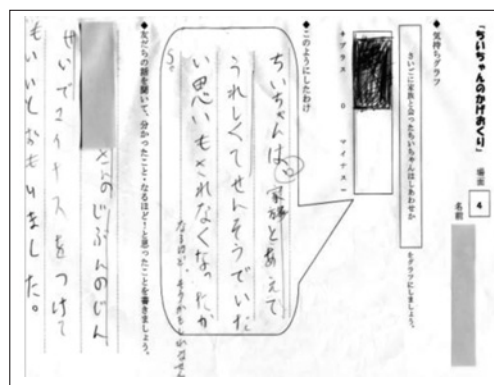 「ちいちゃんのかげおくり」 場面 4
名前
◆気持ちグラフ
さいごに家族と会ったちいちゃんはしあわせか
をグラフにしましょう。
+プラス 0 マイナス-
◆このようにしたわけ
ちいちゃんは家族とあえて
うれしくてせんそうでいた
い思いもされなくなったか
ら。
なるほど、そうかもしれない
◆友だちの話を聞いて、分かったこと・なるほど!と思ったことを書きましょう。
さんのじぶんのじん
せいでマイナスをつけて
もいいとおもいました。